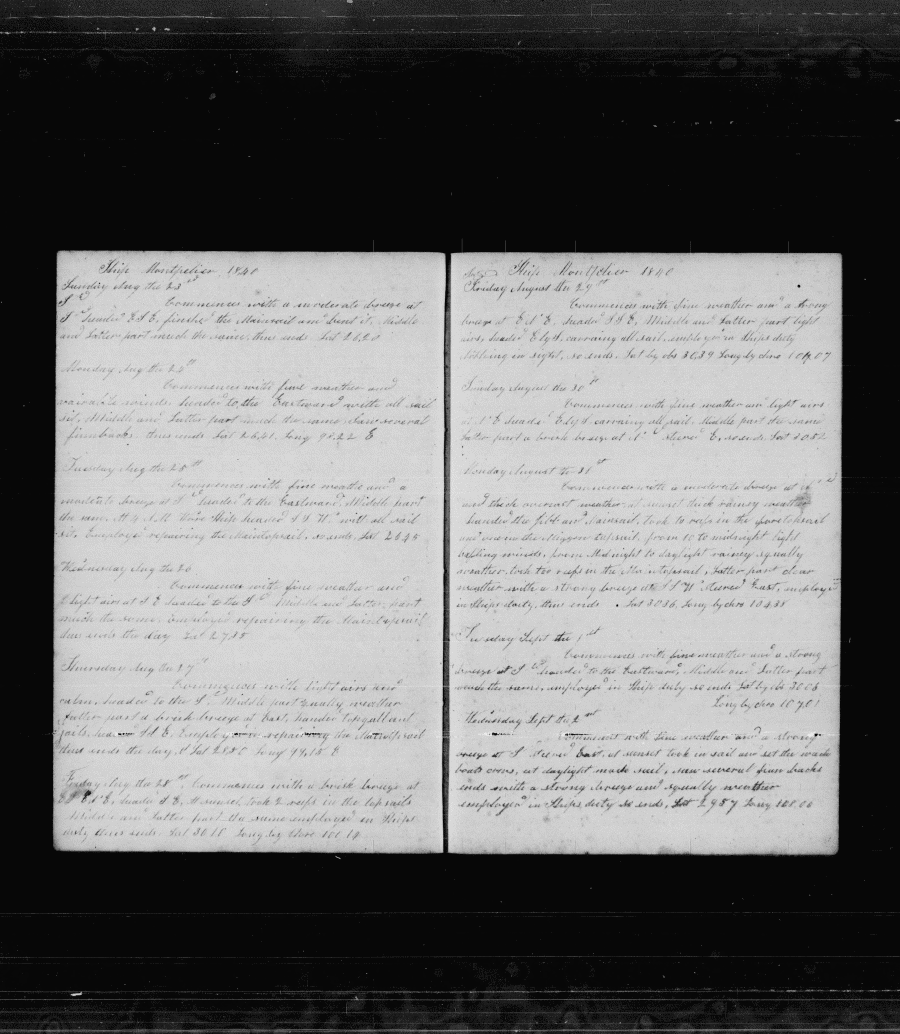 Ship Montpelier 1840
Sunday Aug the 23rd
Commences with a moderate breeze at
S headed E S E, finished the Mainsail and bent it, Middle
and Latter part much the same, thus ends Lat 26,20
Monday Aug the 24th
Commences with fine weather and
variable winds headed to the Eastward with all sail
set, Middle and Latter part much the same Saw several
finnbacks. thus ends Lat 26,41. Long 98.22 E
Tuesday Aug the 25th
Commences with fine weather and a
moderate breeze at S headed to the Eastward, Middle part
the same, At 4 A.M. Wore Ship headed S S W. with all sail
set, Employed repairing the Maintopsail, so ends, Lat 26 45
Wednesday Aug the 26
Commences with fine weather and
light airs at S E headed to the S Middle and Latter part
much the same, employed repairing the Maintopsail
thus ends the day Lat 27,35
Thursday Aug the 27th
Commences with light airs and
calm, headed to the S. Middle part squally weather
Latter part a brisk breeze at East, handed topgallant
sails, headed S S E. Employed repairing the Maintopsail
thus ends the day, Lat Long 99,15 E
Friday Aug the 28th, Commences with a brisk breeze at
E N E, headed S E, At sunset took 2 reefs in the topsails
Middle and Latter part the same employed in Ships
duty thus ends Lat 30 18 Long by chro 100 14
Ship Montpelier 1840
August the 29th
Commences with fine weather and a strong
breeze at E N E, headed S S E, Middle and Latter part light
airs, headed E by S, carrying all sail, employed in Ships duty
nothing in sight, so ends, Lat by obs 30,39 Long by chro 07
Sunday August the 30th
Commences with fine weather and light airs
at N E headed E by S carrying all sail. Middle part the same
Latter part a brisk breeze at N Steered E, so ends Lat
Monday August the 31st
Commences with a moderate breeze at
and thick overcast weather, at sunset thick rainy weather
handed the jibb and Mainsail, took 2 reefs in the foretopsail
and one in the Mizzen topsail, from 10 to midnight light
baffling winds, from Midnight to daylight rainey squally
weather, took two reefs in the Maintopsail, Latter part clear
weather with a strong breeze at S S W Steered East, employed
in Ships duty, thus ends Lat 30 36 Long by chro 104 38
Tuesday Sept the 1st
Commences with fine weather and a strong
breeze at S headed to the Eastward, Middle and Latter part
much the same, employed in Ships duty so ends Lat by obs 30 03
Long by chro 107.01
Wednesday Sept the 2nd
Commences with fine weather and a strong
breeze at S Steered East, at sunset took in sail and set the watch
boats crews, at daylight made sail, saw several finn backs
ends with a strong breeze and squally weather
employed in Ships duty so ends, Lat 29 57 Long 108.00